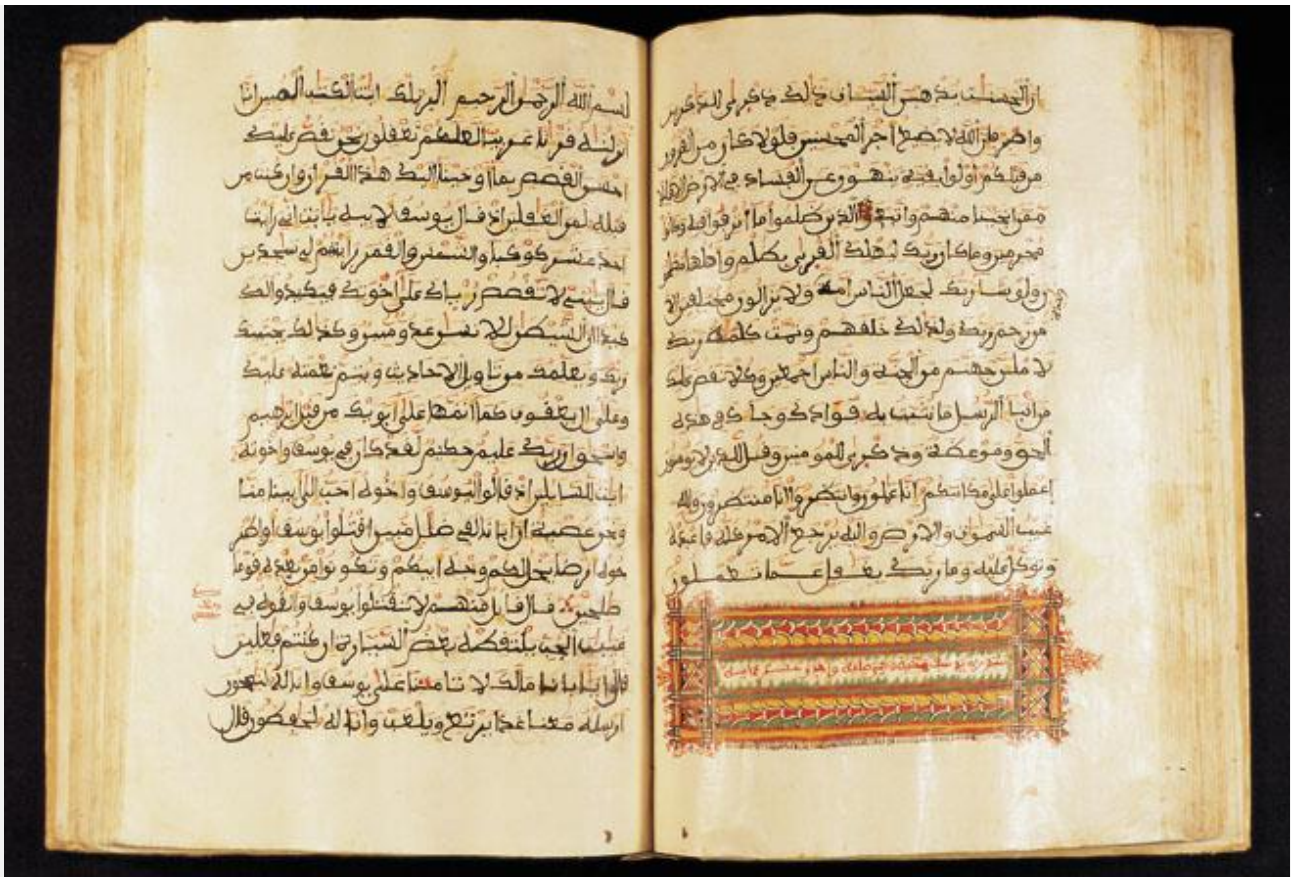 إن الحسنت يذهبن السيئات ذلك ذكرى للذكرين
واصبر فإن الله لا يضيع أجر المحسنين فلولا كان من القرون
من قبلكم أولوا بقية ينهون عن الفساد في الأرض إلا قليلا
ممن أنجينا منهم واتبع الذين ظلموا ما أترفوا فيه وكانوا
مجرمين وما كان ربك ليهلك القرى بظلم وأهلها مصلحو
ن ولو شاء ربك لجعل الناس أمة ولا يزالون مختلفين إلا
من رحم ربك ولذلك خلقهم وتمت كلمة ربك
لأملأن جهنم من الجنة والناس أجمعين وكلا نقص عليك
من أنباء الرسل ما نثبت به فؤادك وجاءك في هذه
الحق وموعظة وذكرى للمومنين وقل للذين لا يومنون
اعملوا على مكانتكم إنا عملون وانتظروا إنا منتظرون ولله
غيب السموات والأرض وإليه يرجع الأمر كله فاعبده
وتوكل عليه وما ربك بغفل عما تعملون
سورة يوسف
بسم الله الرحمن الرحيم الر تلك ايت الكتب المبين إنا
أنزلنه قرءنا عربيا لعلكم تعقلون نحن نقص عليك
أحسن القصص بما أوحينا إليك هذا القرءان وإن كنت من
قبله لمن الغفلين إذ قال يوسف لأبيه يأبت إني رأيت
أحد عشر كوكبا والشمس والقمر رأيتهم لي سجدين
قال يبني لا تقصص رءياك على إخوتك فيكيدوا لك
كيدا إن الشيطن للإنسن عدو مبين وكذلك يجتبيك
ربك ويعلمك من تاويل الأحاديث ويتم نعمته عليك
وعلى ال يعقوب كما أتمها على أبويك من قبل إبرهيم
وإسحق إن ربك عليم حكيم لقد كان في يوسف وإخوته
ايت للسايلين إذ قالوا ليوسف وأخوه أحب إلى أبينا منا
ونحن عصبة إن أبانا لفي ضلل مبين اقتلوا يوسف أو اطر
حوه أرضا يخل لكم وجه أبيكم وتكونوا من بعده قوما
صلحين قال قايل منهم لا تقتلوا يوسف وألقوه في
غيبت الجب يلتقطه بعض السيارة إن كنتم فعلين
قالوا يأبانا مالك لا تامنا على يوسف وإنا له لنصحون
أرسله معنا غدا يرتع ويلعب وإنا له لحفظون قال